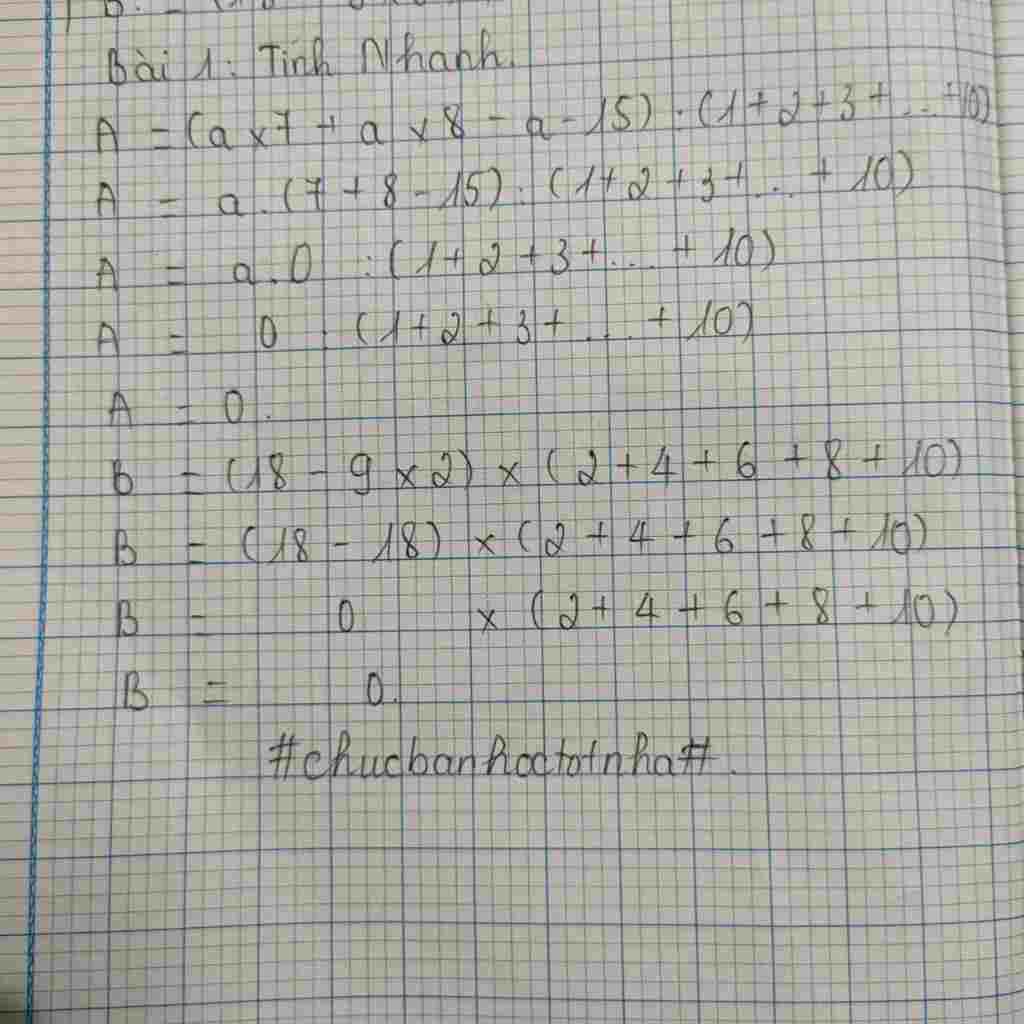 Bài 1: Tính Nhanh.
A = (a x 7 + a x 8 - a - 15) : (1 + 2 + 3 + ... + 10)
A = a . (7 + 8 - 15) : (1 + 2 + 3 + ... + 10)
A = a . 0 : (1 + 2 + 3 + ... + 10)
A = 0 : (1 + 2 + 3 + ... + 10)
A = 0.
B = (18 - 9 x 2) x (2 + 4 + 6 + 8 + 10)
B = (18 - 18) x (2 + 4 + 6 + 8 + 10)
B = 0 x (2 + 4 + 6 + 8 + 10)
B = 0.
#chucbanhoctotnha#.